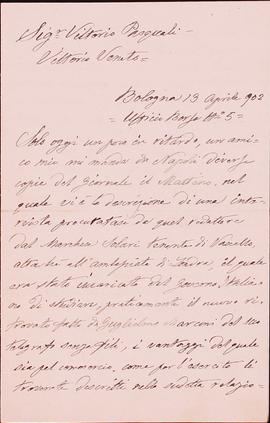 Sigr. Vittorio Pasquali
Vittorio Veneto
Bologna 13 Aprile 902
Ufficio Borsa No. 5
Solo oggi un poco in ritardo, un ami-
co mio mi manda da Napoli diverse
copie del giornale il Mattino, nel
quale vi è la descrizione di una inter-
vista procuratasi da quel redattore
dal Marchese Solari tenente di Vascello,
all'ambasciata di Londra, il quale
era stato incaricato dal Governo Italia-
no di studiare praticamente il nuovo ri-
trovato fatto da Guglielmo Marconi del suo
telegrafo senza fili, i vantaggi del quale
sia pel commercio, come per l'esercito li
troverete descritti nella sudetta relazio-